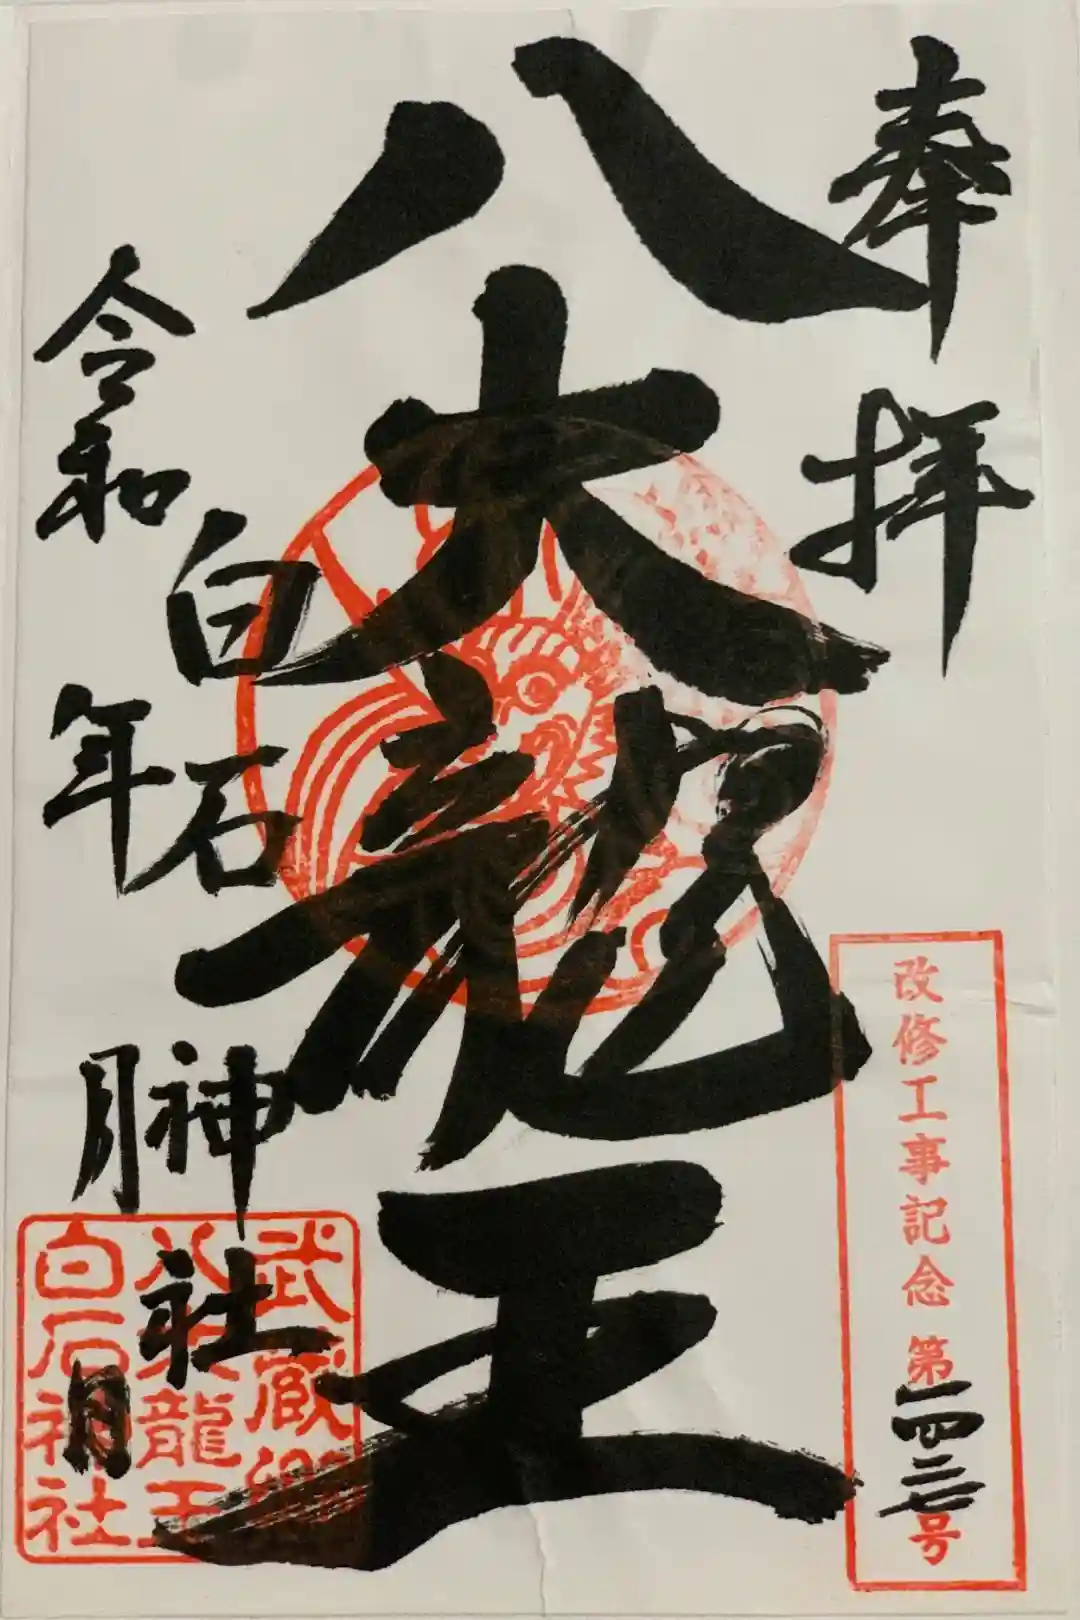 奉拝
改修工事記念 第一四二七号
八大龍王
白石神社
令和 年 月 日
武蔵御
八大龍王
白石神社